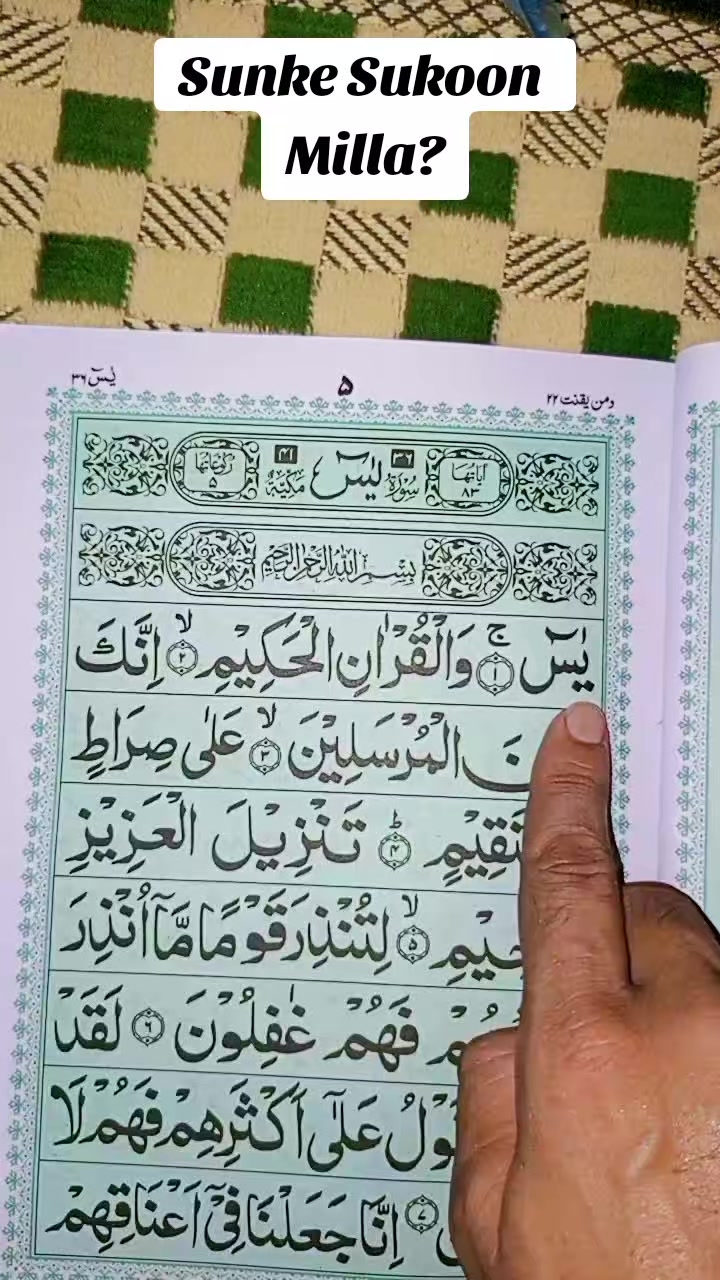 Sunke Sukoon
Milla?
یٰسٓ ٣٦
۵
ومن یقنت ٢٢
اٰیاتها ٨٣ سُوْرَةُ یٰسٓ مَکِّیَّةٌ رکوعاتها ۵
بِسْمِ اللّٰهِ الرَّحْمٰنِ الرَّحِيْمِ
يٰسٓ ۚ﴿۱﴾ وَالْقُرْاٰنِ الْحَكِيْمِ ۙ﴿۲﴾ اِنَّكَ
الْمُرْسَلِيْنَ ۙ﴿۳﴾ عَلٰى صِرَاطٍ
﴿۴﴾ؕ تَنْزِيْلَ الْعَزِيْزِ
ۙ﴿۵﴾ لِتُنْذِرَ قَوْمًا مَّاۤ اُنْذِرَ
فَهُمْ غٰفِلُوْنَ ﴿۶﴾ لَقَدْ
عَلٰۤى اَكْثَرِهِمْ فَهُمْ لَا
﴿۷﴾ اِنَّا جَعَلْنَا فِيْۤ اَعْنَاقِهِمْ